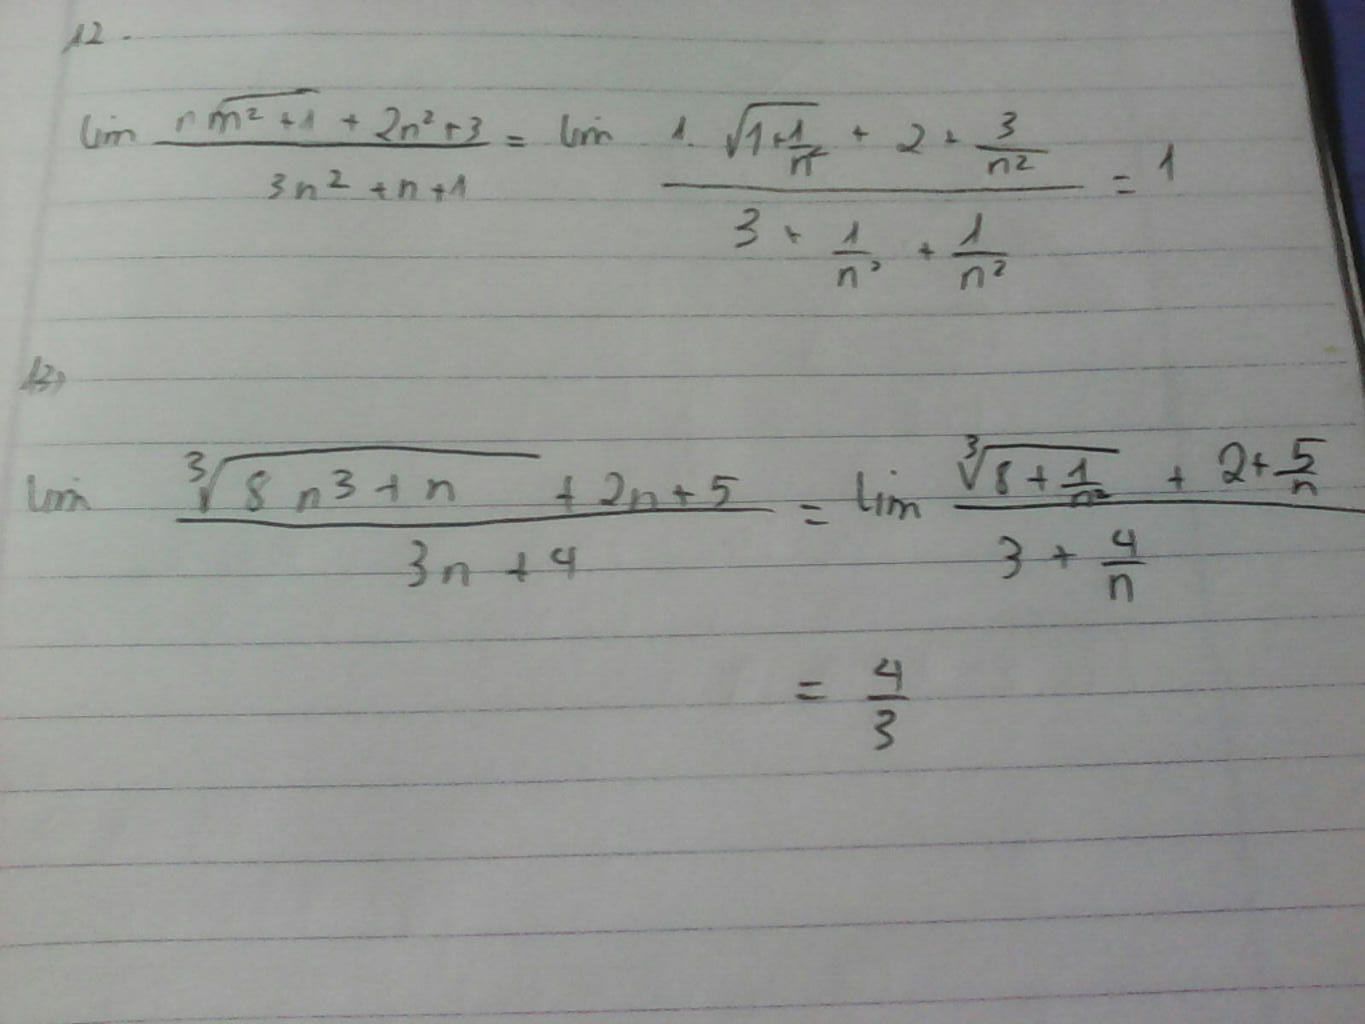 12.
lim (n√(n²+1) + 2n²+3)/(3n²+n+1) = lim (1.√(1+1/n²) + 2 + 3/n²)/(3 + 1/n + 1/n²) = 1
13)
lim (∛(8n³+n) + 2n+5)/(3n+4) = lim (∛(8+1/n²) + 2+5/n)/(3+4/n)
= 4/3